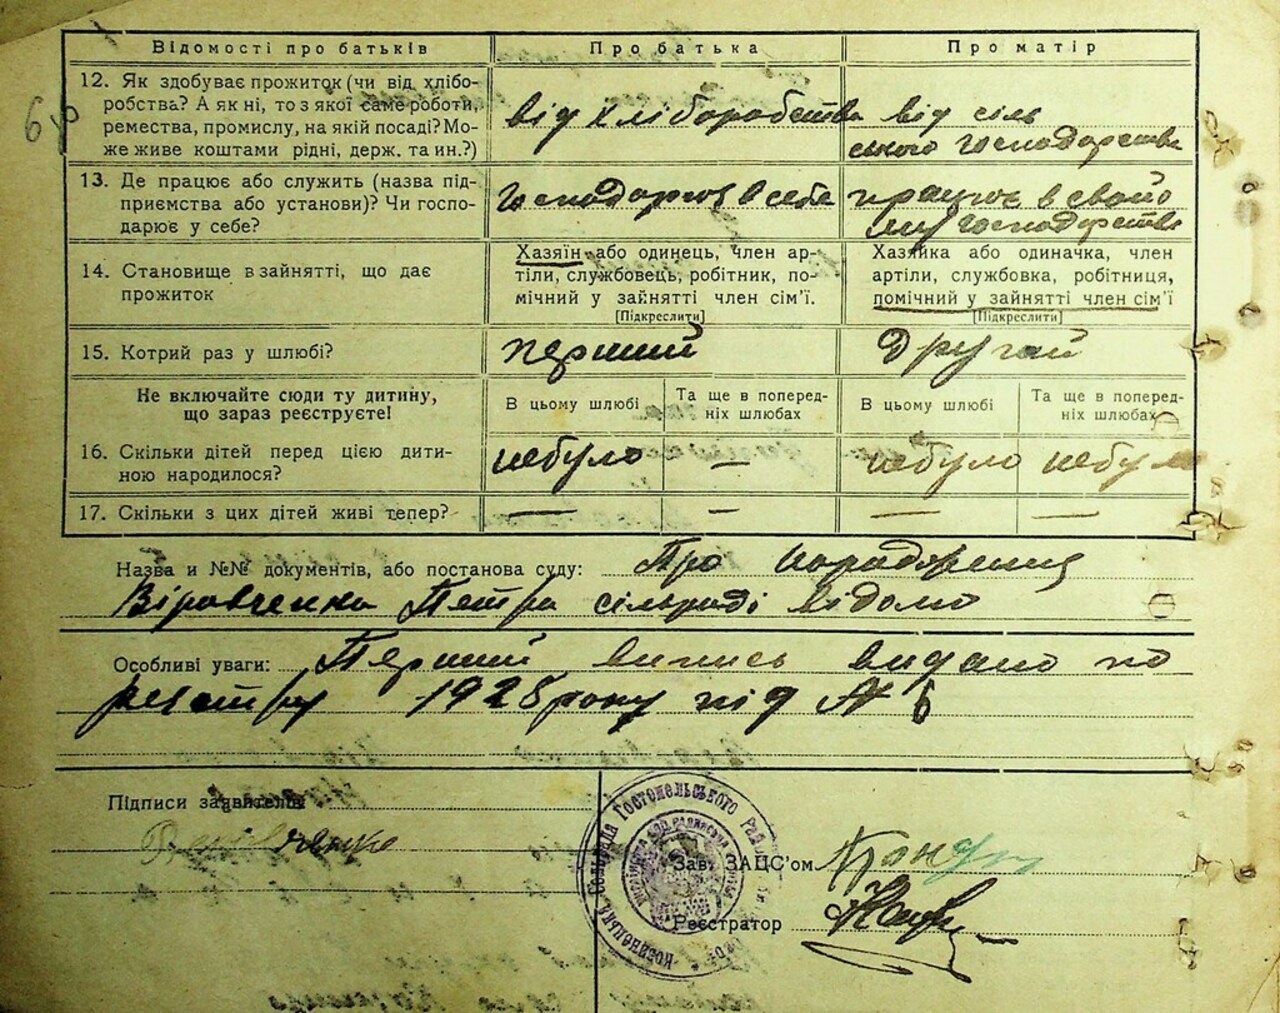 Відомості про батьків Про батька Про матір
12. Як здобуває прожиток (чи від хлібо-
робства? А як ні, то з якої саме роботи,
ремества, промислу, на якій посаді? Мо-
же живе коштами рідні, держ. та ин.?)
від хліборобства
від сіль
ського господарства
13. Де працює або служить (назва під-
приємства або установи)? Чи госпо-
дарює у себе?
господарює в себе
працює в свойо
му господарстві
14. Становище в зайнятті, що дає
прожиток
Хазяїн або одинець, член ар-
тіли, службовець, робітник, по-
мічний у зайнятті член сім'ї.
[Підкреслити]
Хазяйка або одиначка, член
артіли, службовка, робітниця,
помічний у зайнятті член сім'ї
[Підкреслити]
15. Котрий раз у шлюбі? перший другий
Не включайте сюди ту дитину,
що зараз реєструєте!
В цьому шлюбі
Та ще в поперед-
ніх шлюбах
В цьому шлюбі
Та ще в поперед-
ніх шлюбах
16. Скільки дітей перед цією дити-
ною народилося?
небуло — небуло небуло
17. Скільки з цих дітей живі тепер? — — — —
Назва и №№ документів, або постанова суду: Про народження
Петра сільраді відомо
Особливі уваги: Перший випись видано по
реєстру 1928 року під № 6
Підписи заявителів
Зав. ЗАЦС'ом
Реєстратор
Сільрада Гостомельського Рай